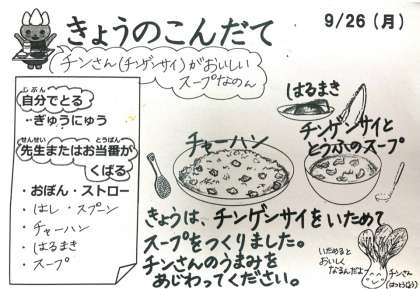 きょうのこんだて
9/26（月）
チンさん（チンゲンサイ）がおいしい
スープなのん
じぶん
自分でとる
・ぎゅうにゅう
せんせい とうばん
先生またはお当番が
くばる
・おぼん・ストロー
・はし・スプーン
・チャーハン
・はるまき
・スープ
はるまき
チャーハン
チンゲンサイと
とうふのスープ
きょうは、チンゲンサイをいためて
スープをつくりました。
チンさんのうまみを
あじわってください。
いためると
おいしく
なるんだよ
チンさん